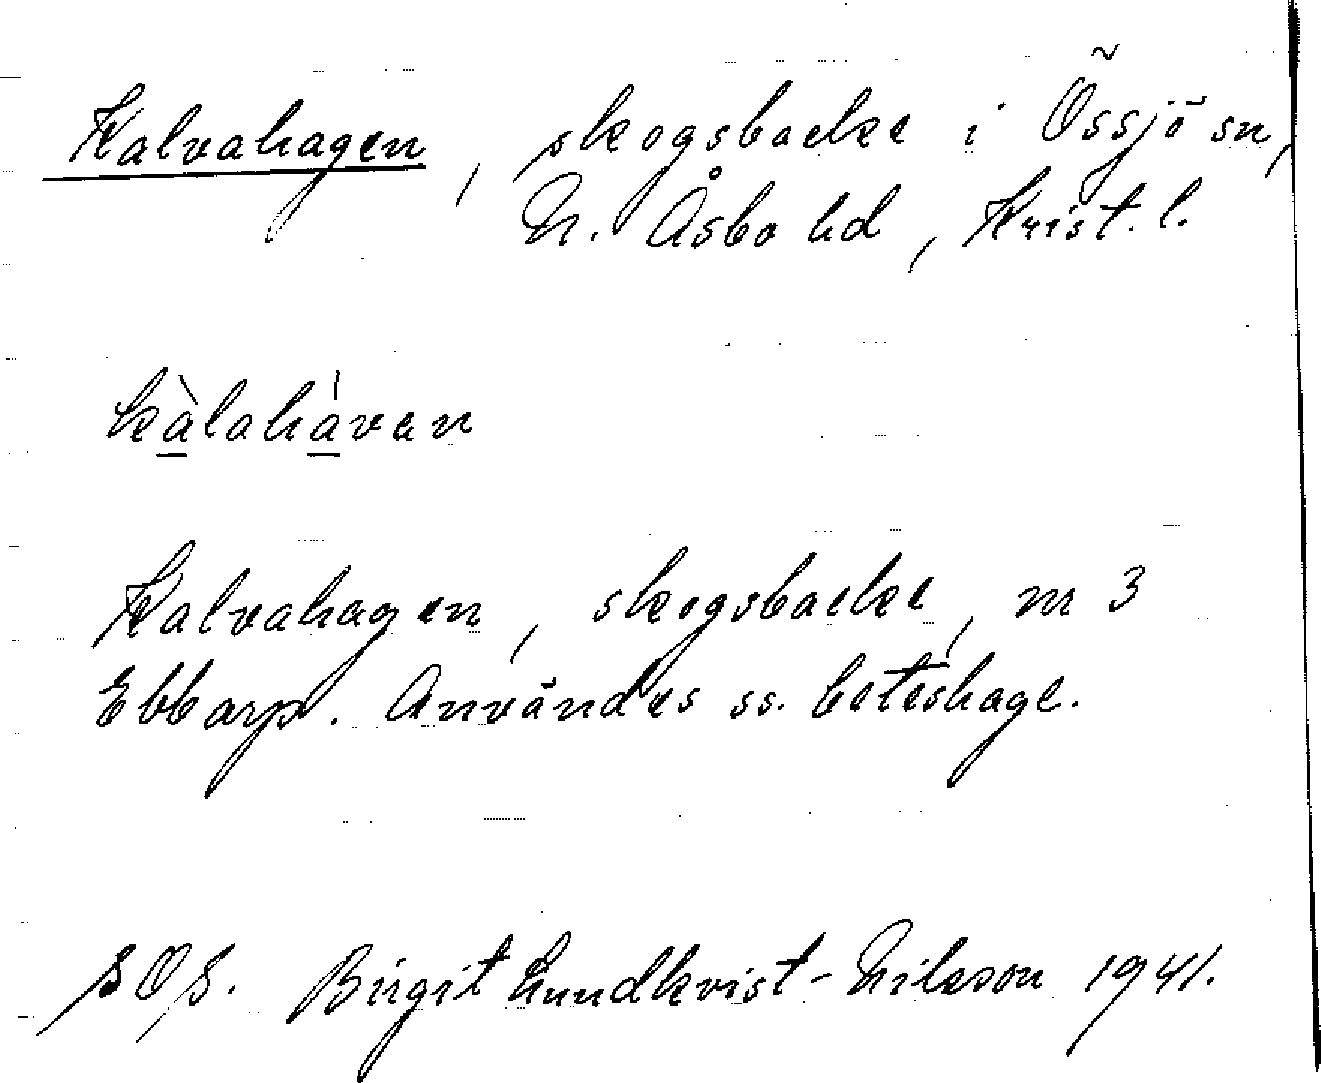 Kalvahagen, skogsbacke i Össjö sn,
N. Åsbo hd, Krist. l.
kàlahávan
Kalvahagen, skogsbacke, m 3
Ebbarp. Användes ss. beteshage.
SOS. Birgit Lundkvist-Nilsson 1941.